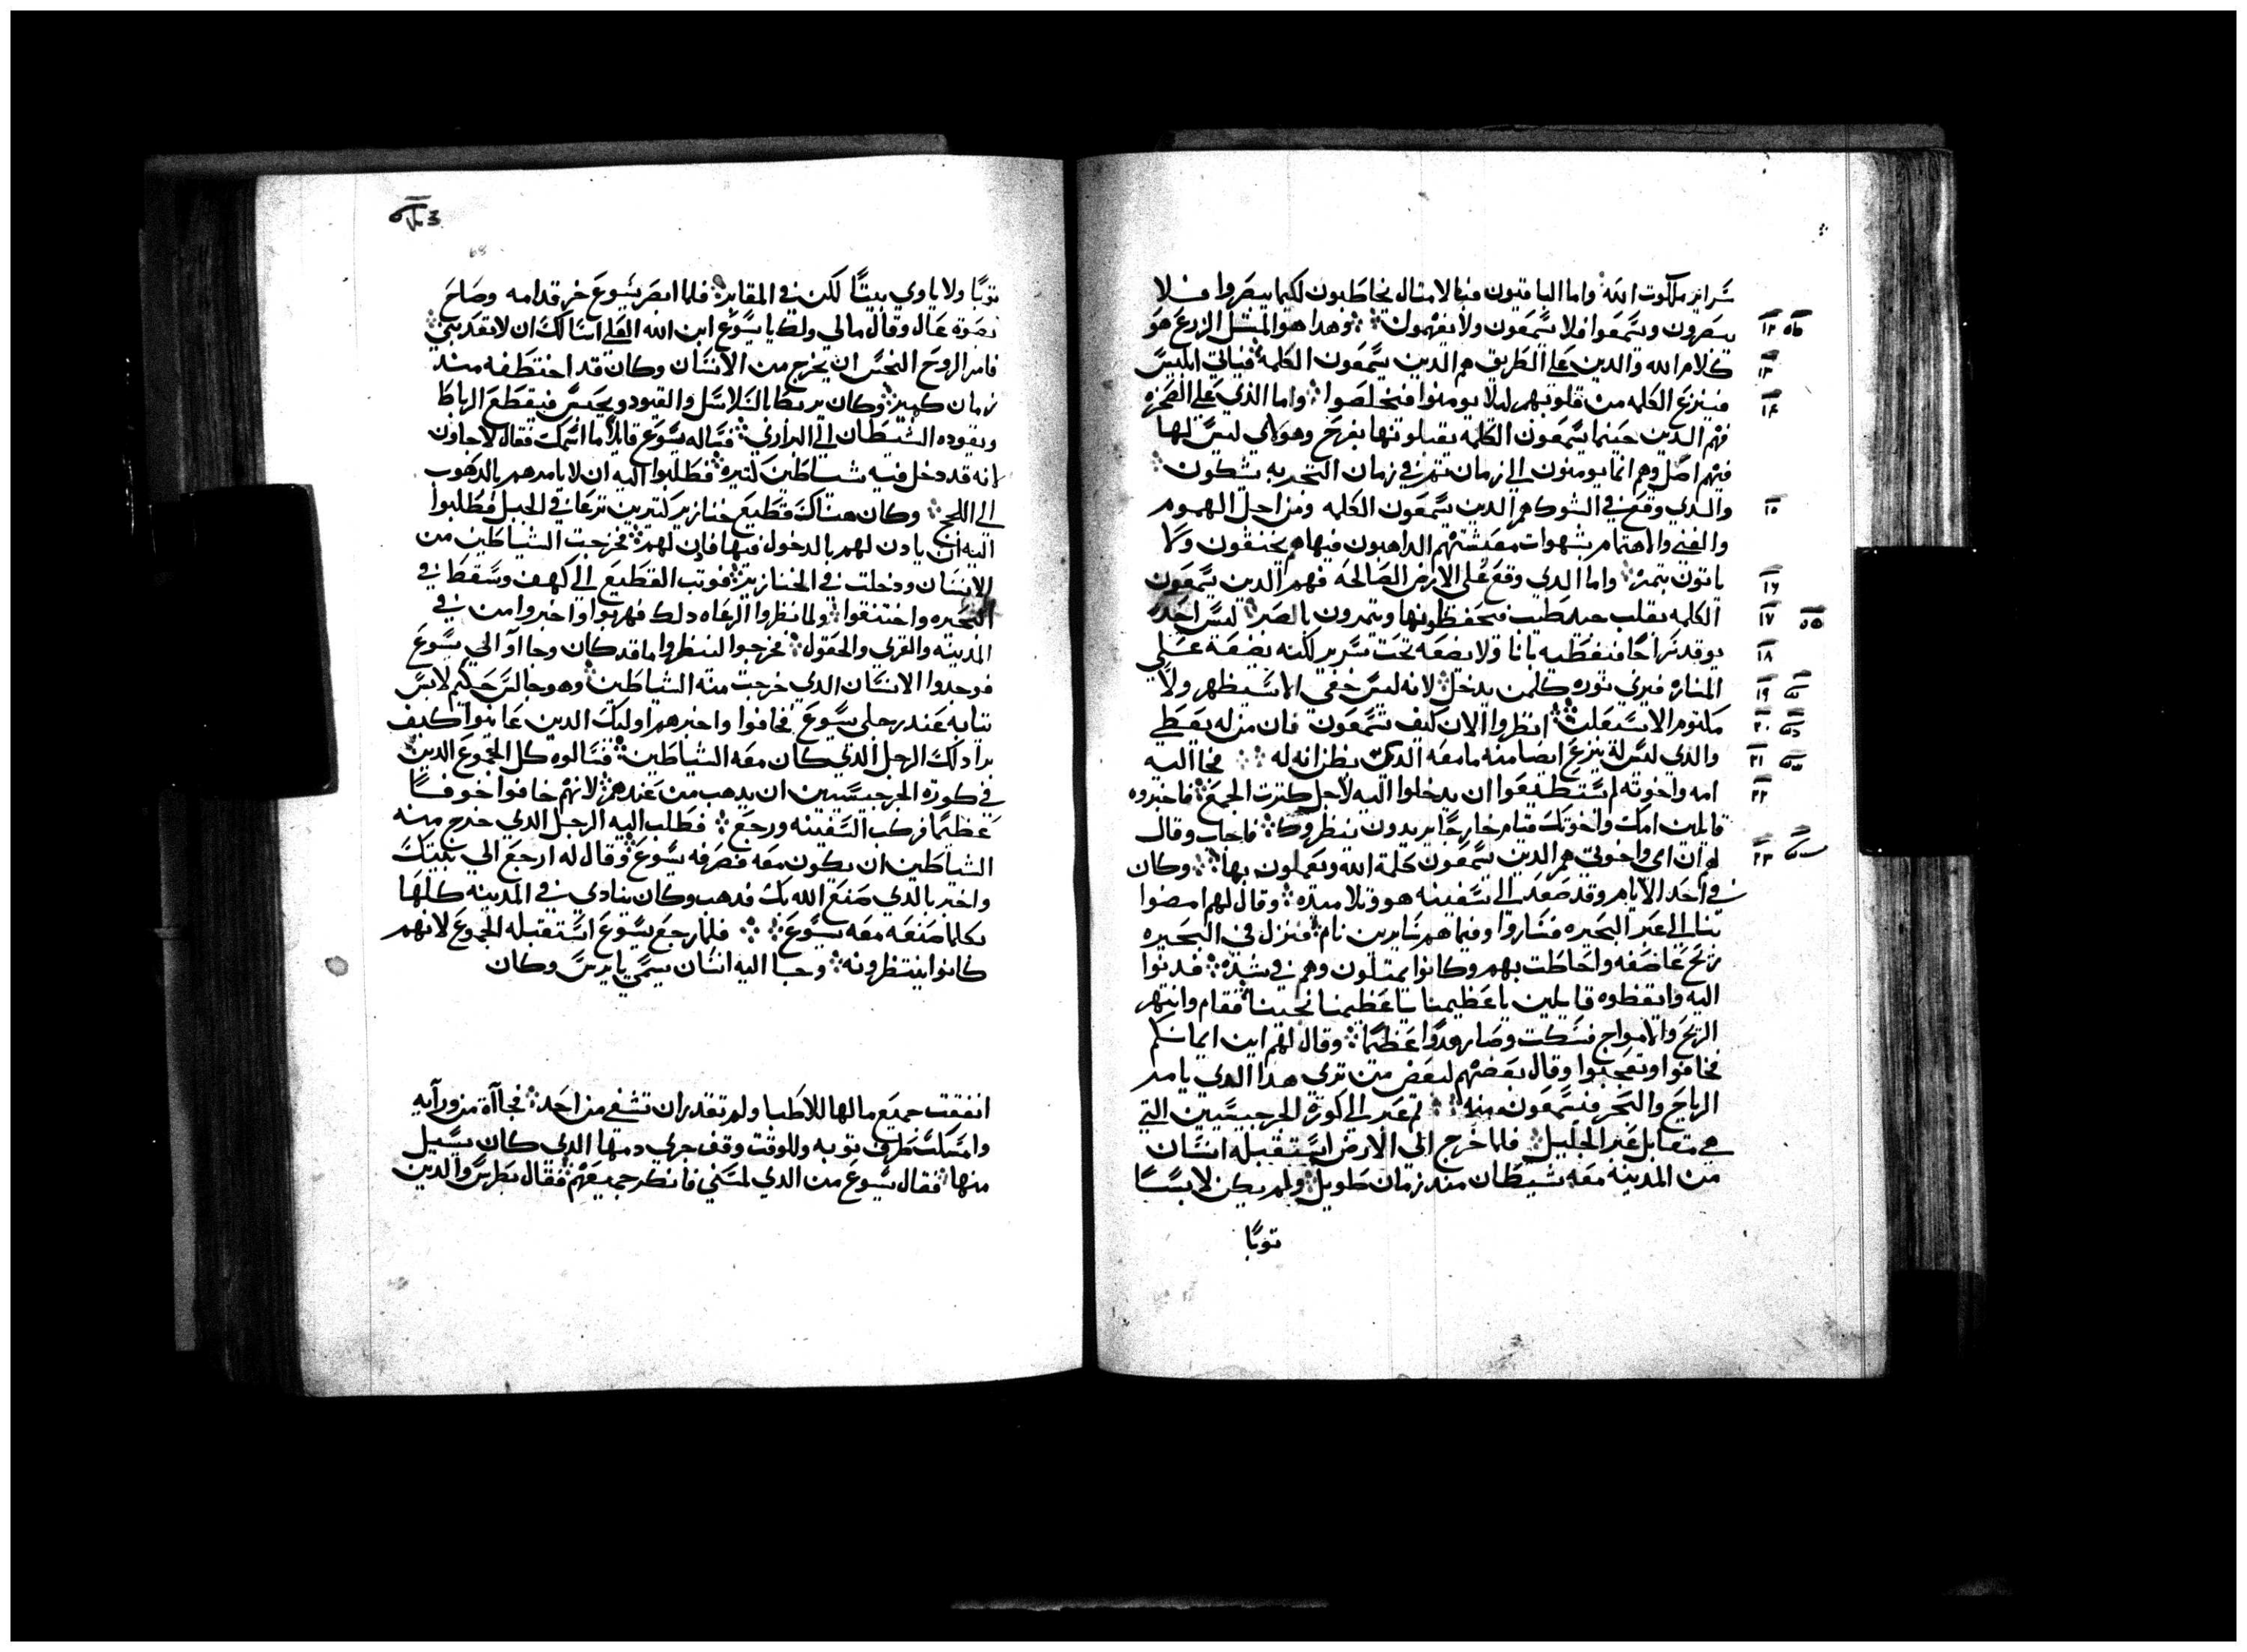 سراير ملكوت الله واما الباقيون فبالامثال يخاطبون لكيما يبصروا فلا
يبصرون ويسمعوا فلا يسمعون ولا يفهمون وهدا هو المثل الزرع هو
١٢
كلام الله والدين علي الطريق هم الدين يسمعون الكلمه فياتي ابليس
١٣
فينزع الكلمه من قلوبهم ليلا يومنوا فيخلصوا واما الذي علي الصخره
١٤
فهم الدين حينما يسمعون الكلمه يقبلونها بفرح وهولاي ليس لها
فيهم اصل وهم انما يومنون الي زمان وفي زمان التجربه يشكون
والدي وقع في الشوك هم الدين يسمعون الكلمه ومن اجل الهموم
١٥
والغني والاهتمام بشهوات معيشتهم الداهبون فيها هم يختنقون ولا
ياتون بثمر واما الدي وقع علي الارض الصالحه فهم الدين يسمعون
١٦
الكلمه بقلب جيد طيب فيحفظونها ويثمرون بالصبر ليس احد
١٧
يوقد سراجا فيغطيه بانا ولا يضعه تحت سرير لكنه يضعه علي
١٨
المناره فيري نوره كلمن يدخل لانه ليس خفي الا سيظهر ولا
١٩
مكتوم الا سيعلن انظروا الان كيف تسمعون فان من له يعطي
٢٠
والذي ليس له ينزع ايضا منه ما معه الدي يظن انه له فجا اليه
٢١
امه واخوته لم يستطيعوا ان يدخلوا اليه لاجل كثرت الجمع فاخبروه
٢٢
قايلين امك واخوتك قيام خارجا يريدون ينظروك فاجاب وقال
لهم ان امي واخوتي هم الدين يسمعون كلمة الله ويعملون بها وكان
٢٣
في احد الايام وقد صعد الي سفينه هو وتلاميده وقال لهم امضوا
بنا الي عبر البحيره فساروا وفيما هم سايرين نام فنزل في البحيره
ريح عاصفه واحاطت بهم وكانوا يمتلون وهم في شده فدنوا
اليه وايقظوه قايلين يا عظيمنا يا عظيمنا نجينا فقام وانتهر
الريح والامواج فسكت وصار هدوا عظيما وقال لهم اين ايمانكم
فخافوا وتعجبوا وقال بعضهم لبعض من تري هدا الدي يامر
الرياح والبحر فيسمعون منه ثم عبر الي كورة الجرجيسيين التي
هي مقابل عبر الجليل فلما خرج الي الارض استقبله انسان
من المدينه معه شيطان مند زمان طويل ولم يكن لابسا
ثوبا
ثوبا ولا ياوي بيتا لكن في المقابر فلما ابصر يسوع خر قدامه وصاح
بصوت عال وقال مالي ولك يا يسوع ابن الله العلي اسالك ان لا تعدبني
فامر الروح النجس ان يخرج من الانسان وكان قد اختطفه مند
زمان كبير وكان يربط بالسلاسل والقيود ويحبس فيقطع الرباط
ويقوده الشيطان الي البراري فساله يسوع قايلا ما اسمك فقال لاجاون
لانه قد دخل فيه شياطين كتيره فطلبوا اليه ان لا يامرهم بالدهوب
الي اللجج وكان هناك قطيع خنازير كتيرين ترعا في الجبل فطلبوا
اليه ان يادن لهم بالدخول فيها فادن لهم فخرجت الشياطين من
الانسان ودخلت في الخنازير فوتب القطيع الي كهف وسقط في
البحيره واختنقوا ولما نظروا الرعاه دلك فهربوا واخبروا من في
المدينه والقري والحقول فخرجوا لينظروا ما قد كان وجااوا الي يسوع
فوجدوا الانسان الدي خرجت منه الشياطين وهو جالس حكيم لابس
تيابه عند رجلي يسوع فخافوا واخبرهم اوليك الدين عاينوا كيف
برا دلك الرجل الدي كان معه الشياطين فسالوه كل الجموع الدين
في كورة الجرجيسيين ان يدهب من عندهم لانهم خافوا خوفا
عظيما فركب السفينه ورجع فطلب اليه الرجل الدي خرج منه
الشياطين ان يكون معه فصرفه يسوع وقال له ارجع الي بيتك
واخبر بالدي صنع الله بك فدهب وكان ينادي في المدينه كلها
بكلما صنعه معه يسوع فلما رجع يسوع استقبله الجموع لانهم
كانوا ينتظرونه وجا اليه انسان يسمي يايرس وكان
انفقت جميع مالها للاطبا ولم تقدر ان تشفي من احد فجاات من ورايه
وامسكت طرف توبه وللوقت وقف جري دمها الدي كان يسيل
منها فقال يسوع من الدي لمسني فانكر جميعهم فقال بطرس والدين